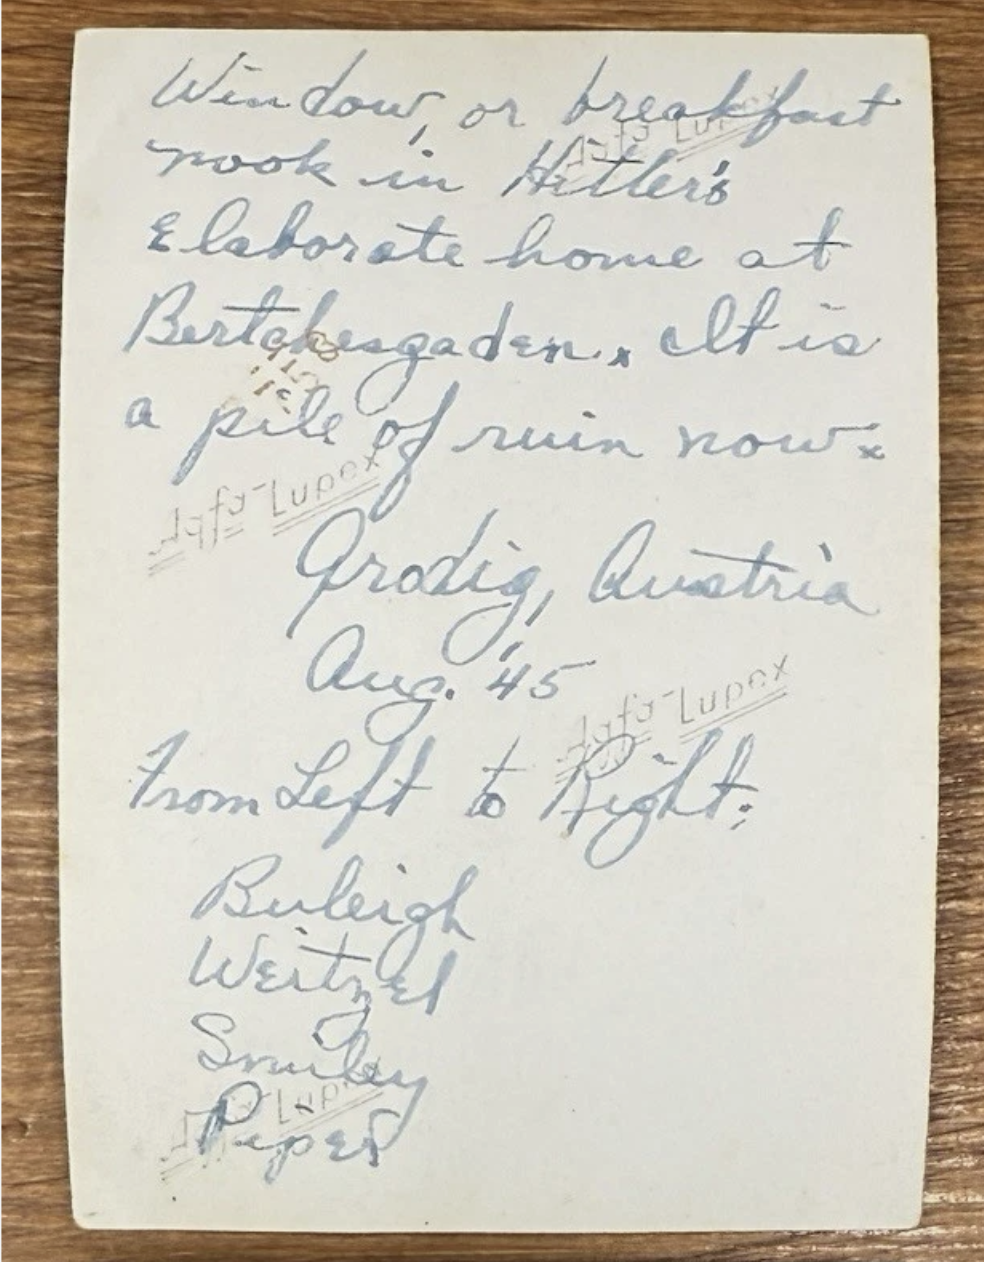 Window, or breakfast
nook in Hitler's
Elaborate home at
Bertchesgaden. It is
a pile of ruin now.
Grodig, Austria
Aug. '45
From Left to Right:
Buleigh
Weitzel
Smiley
Piper
Agfa-Lupex
Agfa-Lupex
Agfa-Lupex
Agfa-Lupex